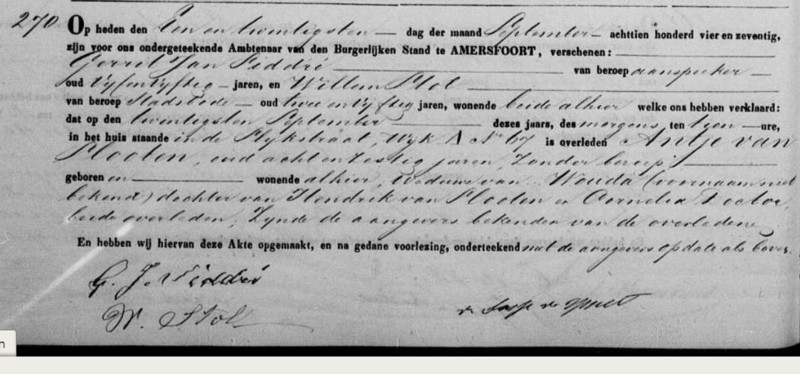 270. Op heden den Een en twintigsten dag der maand September achttien honderd vier en zeventig,
zijn voor ons ondergeteekende Ambtenaar van den Burgerlijken Stand te AMERSFOORT, verschenen:
Gerrit Jan Fiddré van beroep aanspreker
oud Vyf en Vyftig jaren, en Willem Stol
van beroep Stadsbode oud twee en Vyftig jaren, wonende beide alhier welke ons hebben verklaard:
dat op den twintigsten September dezes jaars, des morgens, ten tyen ure,
in het huis staande in de Slykstraat, Wyk A No 67 is overleden Antje van
Slooten, oud acht en zestig jaren, Zonder beroep,
geboren en wonende alhier, Weduwe van Wouda (voornaam niet
bekend) dochter van Hendrik van Slooten en Cornelia Doctor
beide overleden, Zynde de aangevers bekenden van de overledene
En hebben wij hiervan deze Akte opgemaakt, en na gedane voorlezing, onderteekend met de aangevers op date als boven.
G. J. Fiddré
W. Stol
n